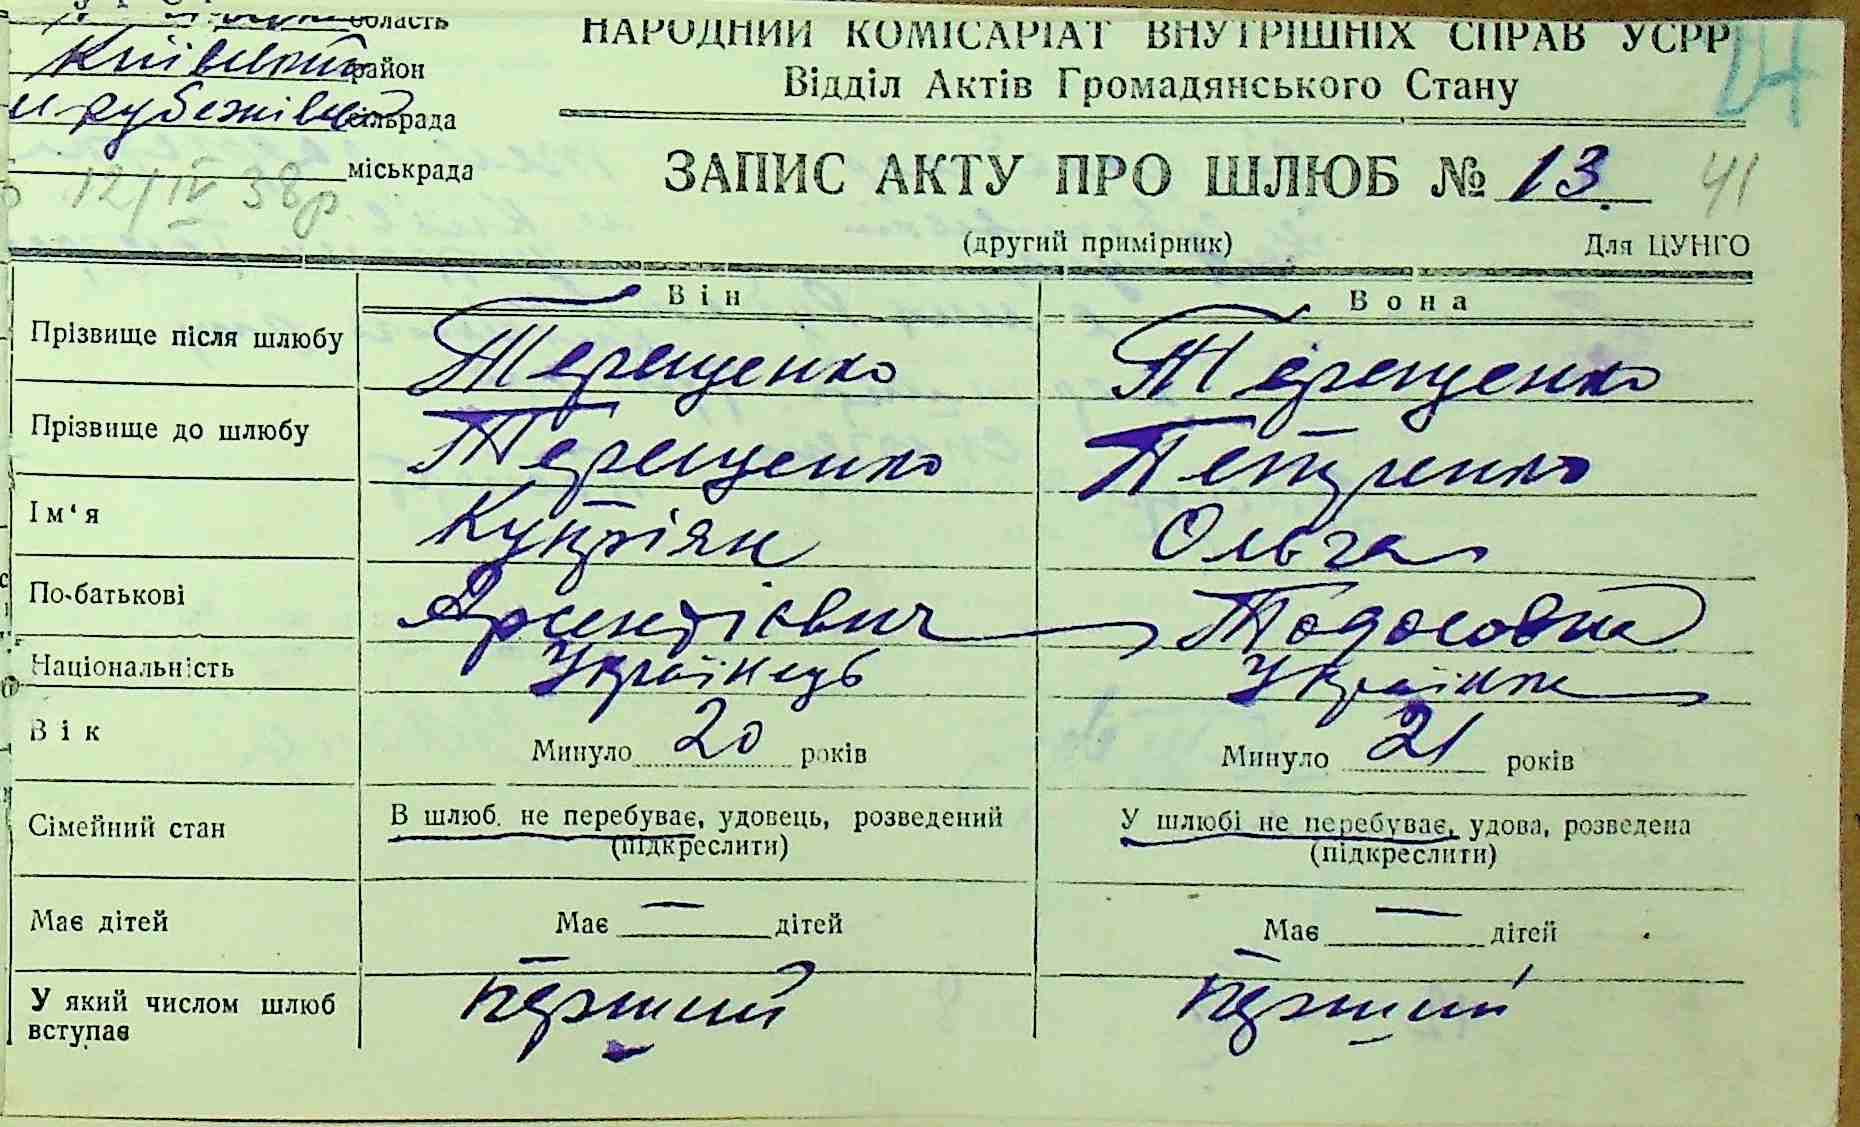 область
Київський район
М рубежівка сільрада
міськрада
12/IV 38р
НАРОДНИЙ КОМІСАРІАТ ВНУТРІШНІХ СПРАВ УСРР
Відділ Актів Громадянського Стану
ЗАПИС АКТУ ПРО ШЛЮБ № 13. 41
(другий примірник) Для ЦУНГО
Він Вона
Прізвище після шлюбу Терещенко Терещенко
Прізвище до шлюбу Терещенко Петренко
Ім'я Купріян Ольга
По-батькові Арсентієвич Тодосовна
Національність Українець Українка
Вік Минуло 20 років Минуло 21 років
Сімейний стан В шлюб. не перебуває, удовець, розведений У шлюбі не перебуває, удова, розведена
(підкреслити) (підкреслити)
Має дітей Має — дітей Має — дітей
У який числом шлюб вступає перший перший